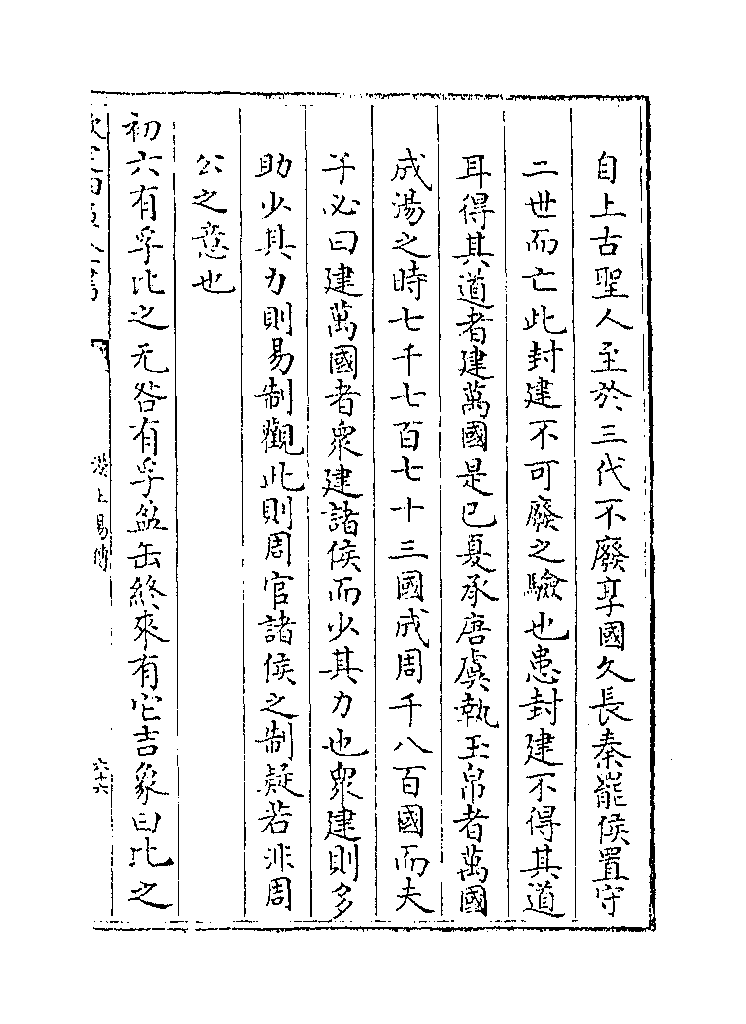 自上古聖人至於三代不廢享國久長秦罷侯置守
二世而亡此封建不可廢之驗也患封建不得其道
耳得其道者建萬國是已夏承唐虞執玉帛者萬國
成湯之時七千七百七十三國成周千八百國而夫
子必曰建萬國者衆建諸侯而少其力也衆建則多
助少其力則易制觀此則周官諸侯之制疑若非周
公之意也
初六有孚比之无咎有孚盈缶終來有它吉象曰比之
漢上易傳
六十六